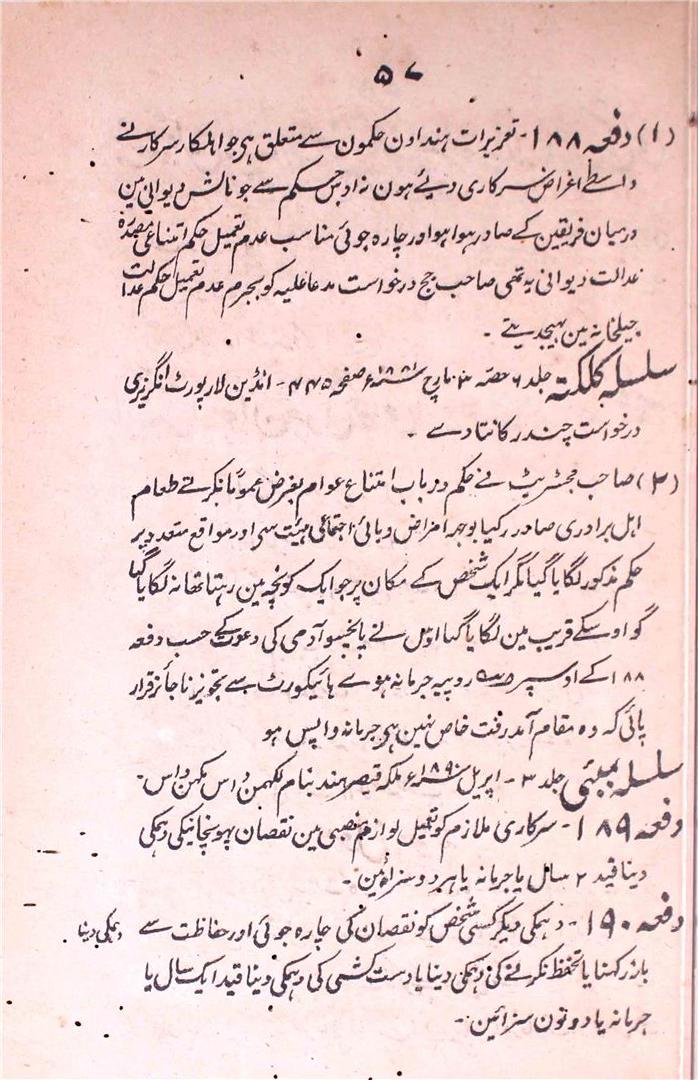 ۵۷
(۱) دفعہ ۱۸۸ - تعزیرات ہند اون حکمون سے متعلق ہی جو اہلکار سرکار نے
واسطے اغراض سرکاری دیئے ہون نہ اوس حکم سے جو نالش دیوانی مین
درمیان فریقین کے صادر ہوا ہو اور چارہ جوئی مناسب عدم تعمیل حکم امتناعی مصدرہ
عدالت دیوانی یہ تھی صاحب جج درخواست مدعا علیہ کو بجرم عدم تعمیل حکم عدالت
جیلخانہ مین بھیجدیتے -
سلسلہ کلکتہ جلد ۶ حصہ ۳ مارچ ۱۸۸۱ء صفحہ ۴۴۵ - انڈین لارپورٹ انگریزی
درخواست چندر کانتا دے -
(۲) صاحب مجسٹریٹ نے حکم درباب امتناع عوام بغرض عموماً نکرنے طعام
اہل برادری صادر کیا بوجہ امراض وبائی اجتماعی ہیئت سے اور مواقع متعدد پر
حکم مذکور لگایا گیا مگر ایک شخص کے مکان پر جو ایک کوچہ مین رہتا تھا نہ لگایا گیا
گو اوسکے قریب مین لگایا گیا اوس نے پانچسو آدمی کی دعوت کے حسب دفعہ
۱۸۸ کے اوسپر روپیہ جرمانہ ہوے ہائیکورٹ سے تجویز ناجائز قرار
پائی کہ وہ مقام آمد رفت خاص نہین ہی جرمانہ واپس ہو
سلسلہ بمبئی جلد ۳ - اپریل ۱۸۹۰ء ملکہ قیصر ہند بنام لکھمن داس مکھن داس -
دفعہ ۱۸۹ - سرکاری ملازم کو تعمیل لوازم منصبی مین نقصان پہونچانیکی دہمکی
دینا قید ۲ سال یا جرمانہ یا ہر دو سزائین -
دفعہ ۱۹۰ - دہمکی دیکر کسی شخص کو نقصان کی چارہ جوئی اور حفاظت سے
دہمکی دینا
باز رکھنا یا تحفظ نکرنے کی دہمکی دینا یا دست کشی کی دہمکی دینا قید ایک سال یا
جرمانہ یا دونون سزائین -